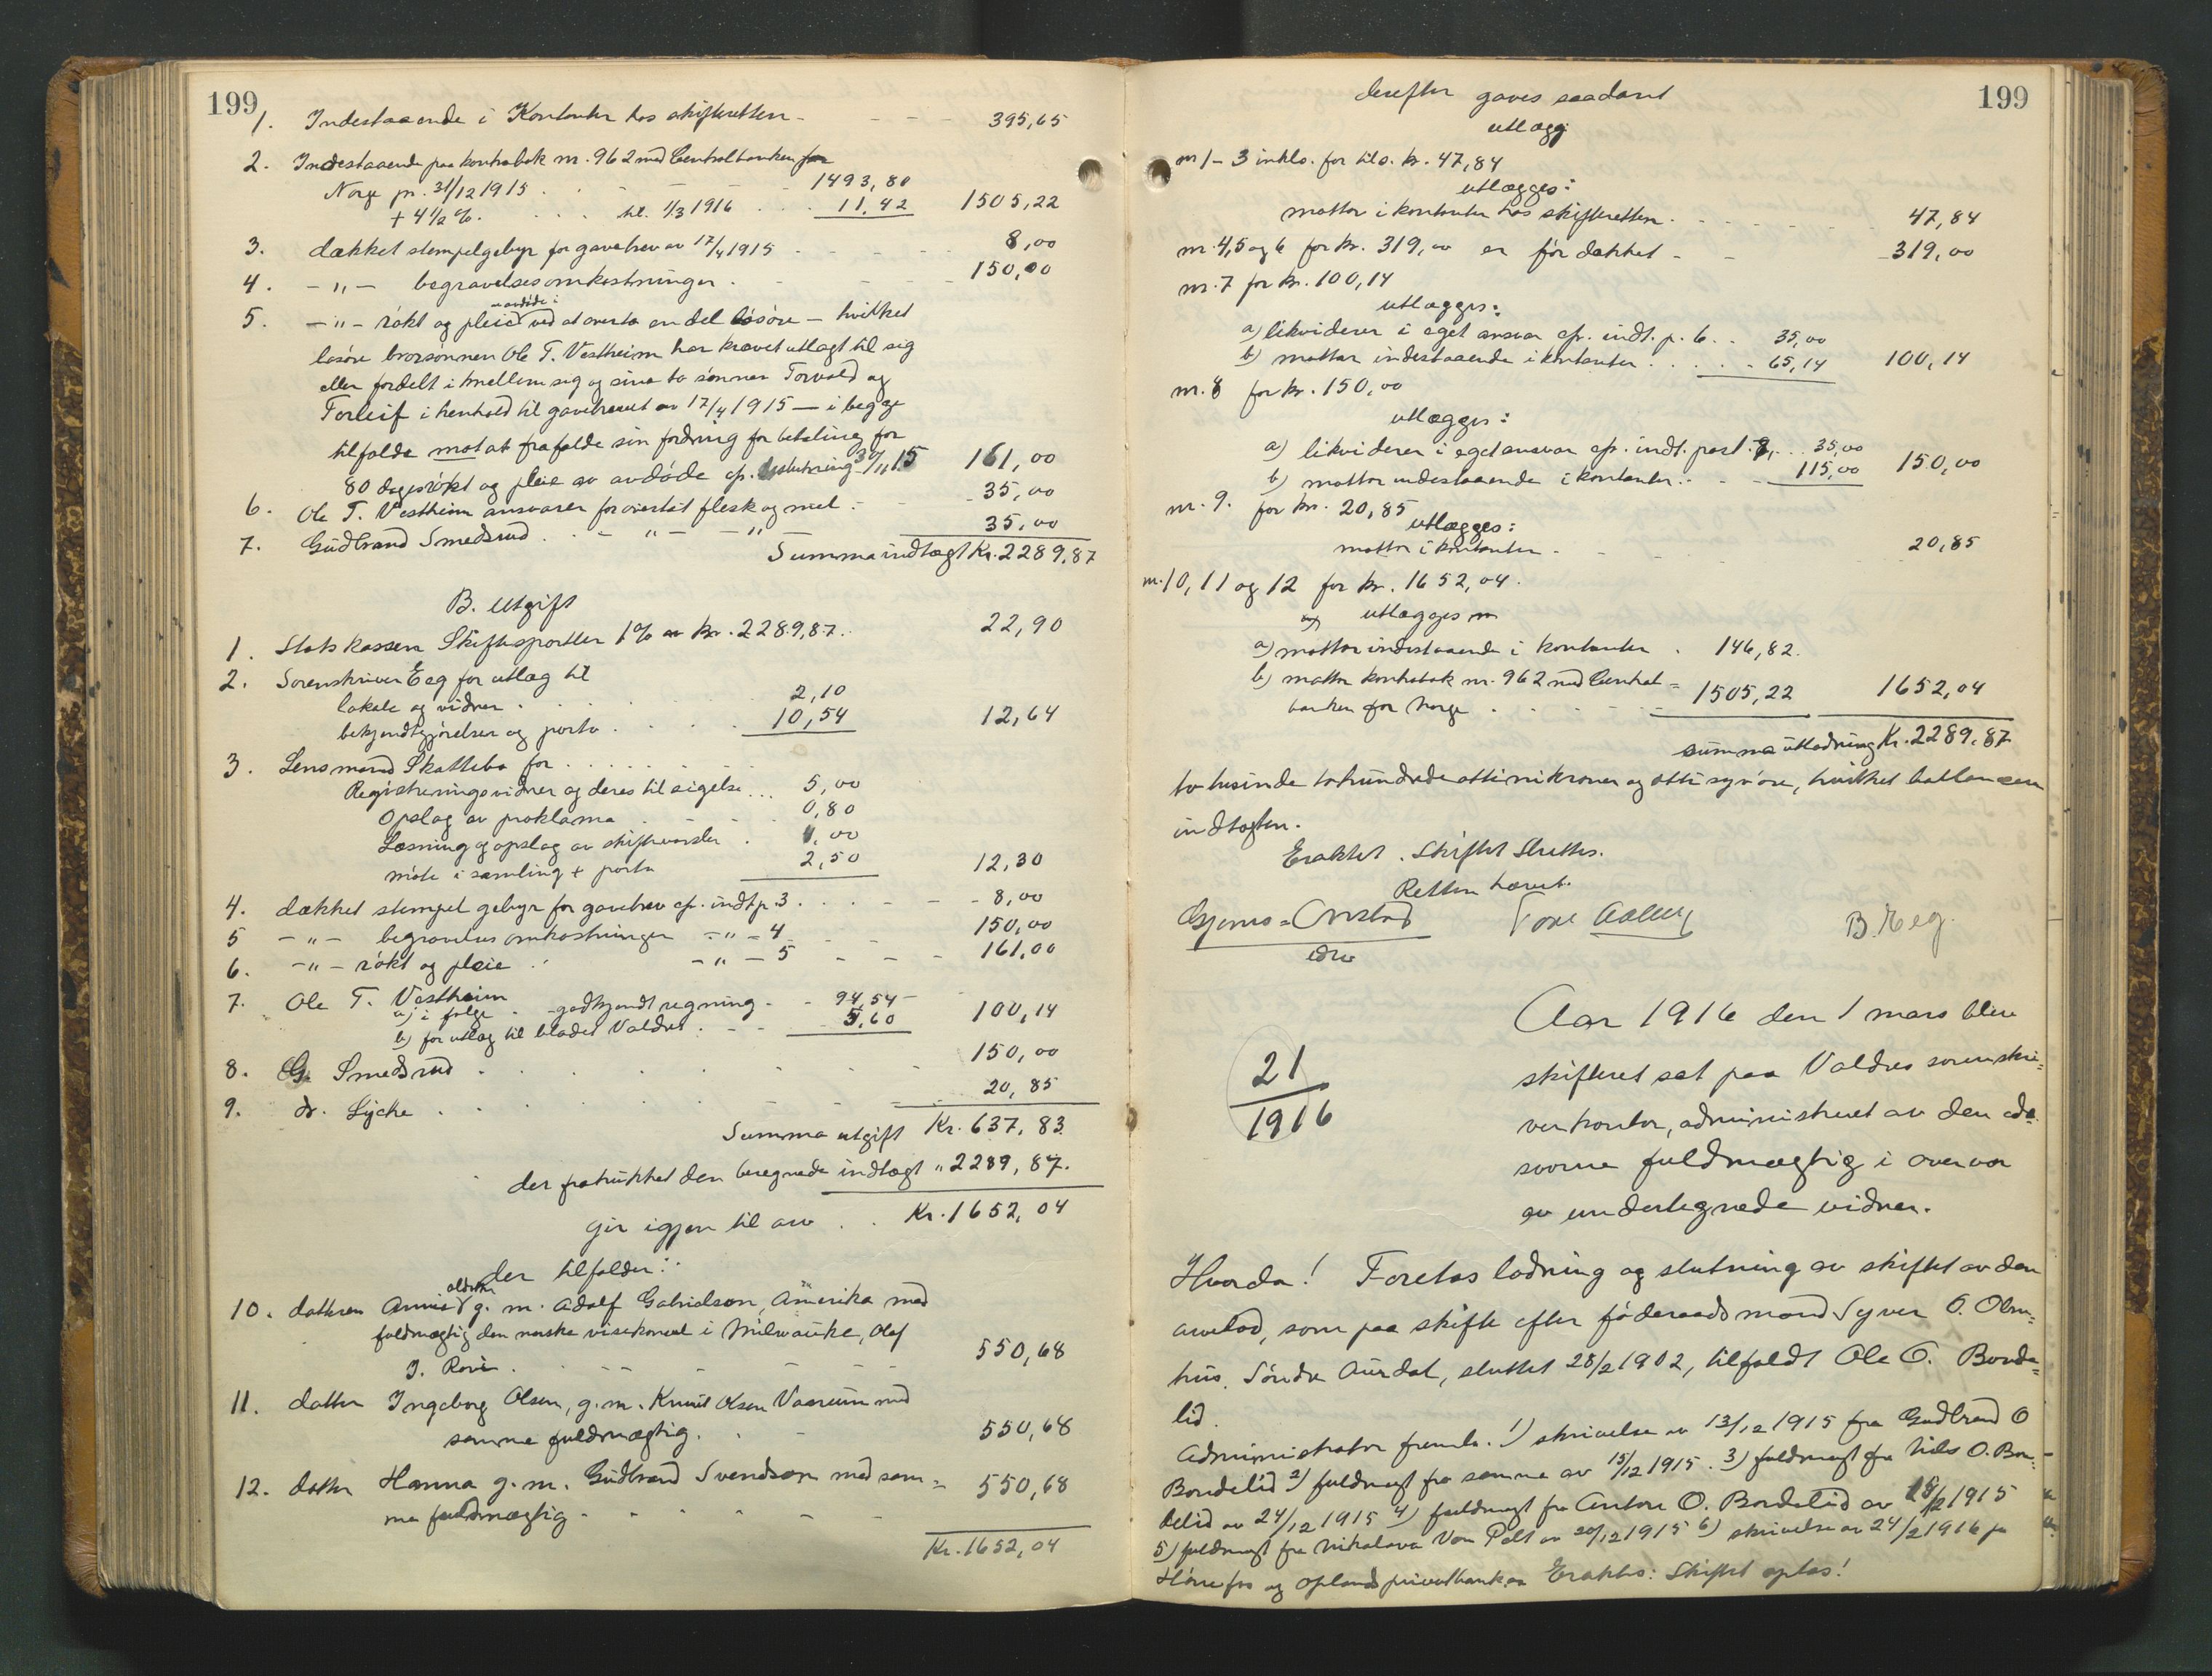 199
1. Indestaaende i Kontanter hos skifteretten - - - - 395,65
2. Indestaaende paa kontrabok nr. 962 med Centralbanken for
Norge pr. 31/12 1915 . . - - - 1493,80
+ 4 1/2 %. . . . til. 1/3 1916 . . . 11,42 1505,22
3. dækket stempelgebyr for gavebrev av 17/4 1915 - - - - 8,00
4. -"- begravelsesomkostninger . - - - 150,00
5. -"- røkt og pleie av avdøde ved at overta en del løsøre - hvilket
løsøre brorsønnen Ole T. Vestheim har krævet utlagt til sig
eller fordelt imellem sig og sine to sønner Torvald og
Torleif i henhold til gavebrevet av 17/4 1915 - i begge
tilfælde mot at frafalde sin fordring for betaling for
80 dages røkt og pleie av avdøde cfr. beslutning 30/11 15 161,00
6. Ole T. Vestheim ansvarer for overtat flesk og mel - - 35,00
7. Gudbrand Smedsrud . . - " - - " 35,00
Summa indtægt Kr. 2289,87
B. Utgift
1. Statskassen Skiftesportler 1% av kr. 2289,87. . 22,90
2. Sorenskriver Eeg for utlæg til
lokale og vidner . . . . . 2,10
bekjendtgjørelser og porto . . . . 10,54 12,64
3. Lensmand Skattebo for . . . . . . .
Registreringsvidner og deres tilsigelse . . . 5,00
Opslag av proklama . . . . 0,80
Læsning og opslag av skiftevarsler . 4,00
møte i samling + porto 2,50 12,30
4. dækket stempelgebyr for gavebrev cfr. indt. p. 3 . . . - - 8,00
5 -"- begravelsesomkostninger -"- 4 - - 150,00
6. -"- røkt og pleie . -"- 5 - - - 161,00
7. Ole T. Vestheim
a) i følge - godkjendt regning - - 94,54
b) for utlæg til bladet Valdres . - - 5,60 100,14
8. G. Smedsrud . . . . . . . 150,00
9. dr. Lycke . . . . . - - - 20,85
Summa utgift Kr. 637,83
der fratrukket den beregnede indtægt " 2289,87.
gir igjen til arv . . Kr. 1652,04
der tilfalder:
10. datteren Annie g. m. Adolf Gabrielson, Amerika med
fuldmægtig den norske visekonsul i Milwauke, Olaf
I. Rove . . - - - - 550,68
11. datter Ingeborg Olsen, g. m. Knut Olsen Vasrum med
samme fuldmægtig. . - 550,68
12. datter Hanna g. m. Gudbrand Svendson med sam=
me fuldmægtig - - - - - 550,68
Kr. 1652,04
199
derefter gaves saadant
utlæg
nr 1 - 3 inkls. for tils. kr. 47,84
utlægges:
mottar i kontanter hos skifteretten . - - - 47,84
nr. 4, 5 og 6 for kr. 319,00 er før dækket - - 319,00
nr. 7 for kr. 100,14
utlægges:
a) likviderer i eget ansvar cfr. indt. p. 6 . . 35,00
b) mottar indestaaende i kontanter . . . . . 65,14 100,14
nr. 8 for kr. 150,00
utlægges:
a) likviderer i eget ansvar cfr. indt. post 7, . . . 35,00
b) mottar indestaaende i kontanter . . - - 115,00 150,00
nr. 9. for kr. 20,85
utlægges:
mottar i kontanter - - - 20,85
nr. 10, 11 og 12 for kr. 1652,04.
utlægges
a) mottar indestaaende i kontanter . 146,82.
b) mottar kontrabok nr. 962 med Central=
banken for Norge . . . . - - 1505,22 1652,04
summa utlodning Kr. 2289,87
to tusinde tohundrede ottini kroner og otti syv øre, hvilket ballancerer
indtægten.
Eraktet. Skiftet sluttes.
Retten hævet.
B. Eeg.
edsv
21
1916
Aar 1916 den 1 mars blev
skifteret sat paa Valdres sorenskri=
verkontor, administreret av den ed=
svorne fuldmægtig i overvær
av undertegnede vidner.
Hvorda! Foretas lodning og slutning av skiftet av den
arvelod, som paa skifte efter føderaadsmand Syver O. Olm=
hus, Søndre Aurdal, sluttet 28/2 1902, tilfaldt Ole O. Bonde=
lid.
Administrator freml. 1) skrivelse av 13/12 1915 fra Gudbrand O
Bondelid 2) fuldmagt fra samme av 15/12 1915. 3) fuldmagt fra Nils O. Bon=
delid av 24/12 1915 4) fuldmagt fra Anton O. Bondelid av 18/12 1915
5) fuldmagt fra Nikolava Von Pelt av 20/12 1915 6) skrivelse av 24/2 1916 fra
Hønefos og Oplands privatbank. Eraktes: Skiftet optas!